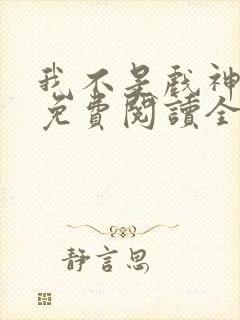 我不是戲神
免費閱讀全
靜言思